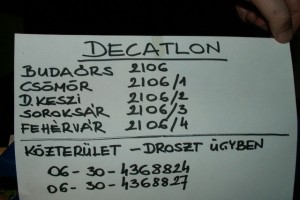 DECATLON
BUDAÖRS 2106
CSÖMÖR 2106/1
D.KESZI 2106/2
SOROKSÁR 2106/3
FEHÉRVÁR 2106/4
KÖZTERÜLET - DROSZT ÜGYBEN
06-30-4368824
06-30-4368827